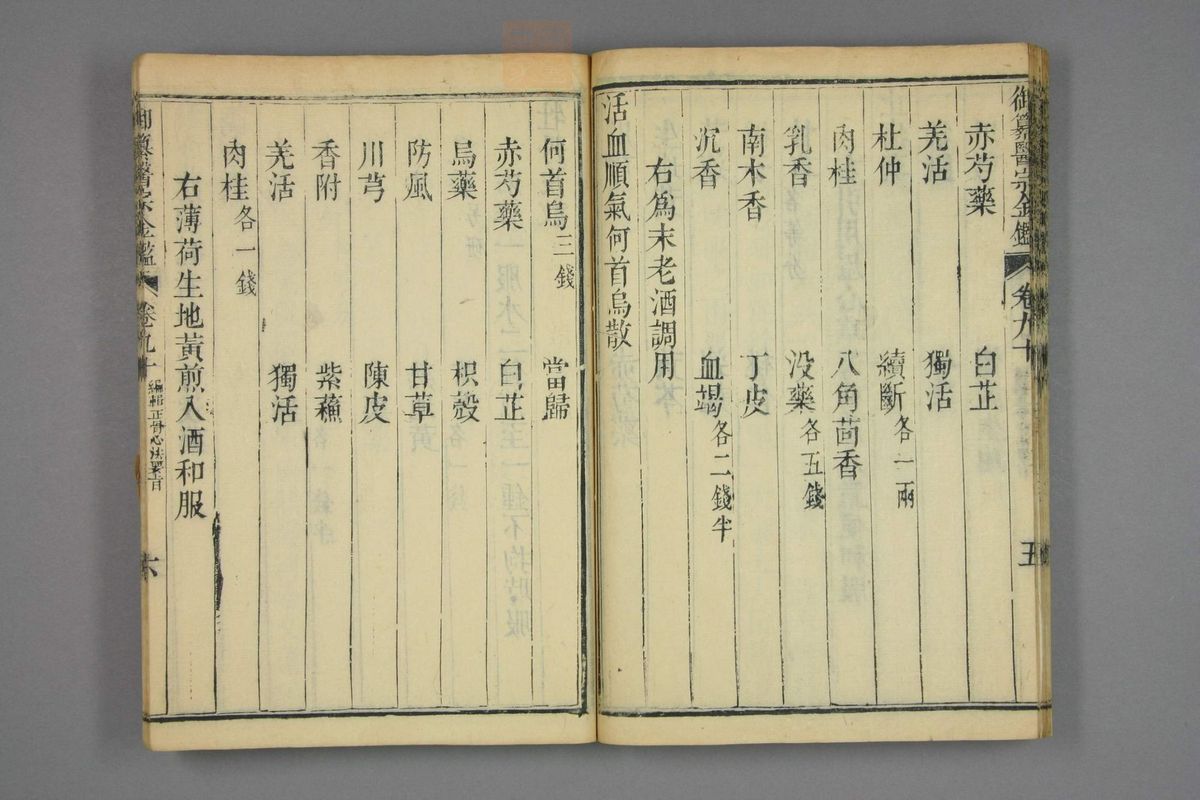 御纂醫宗金鑑 卷九十 五
赤芍藥 白芷
羌活 獨活
杜仲 續斷各一兩
肉桂 八角茴香
乳香 没藥各五錢
南木香 丁皮
沉香 血竭各二錢半
右爲末老酒調用
活血順氣何首烏散
何首烏三錢 當歸
赤芍藥 白芷
烏藥 枳殼
防風 甘草
川芎 陳皮
香附 紫蘇
羌活 獨活
肉桂各一錢
右薄荷生地黃煎入酒和服
御纂醫宗金鑑 卷九十 編輯正骨心法要旨 六